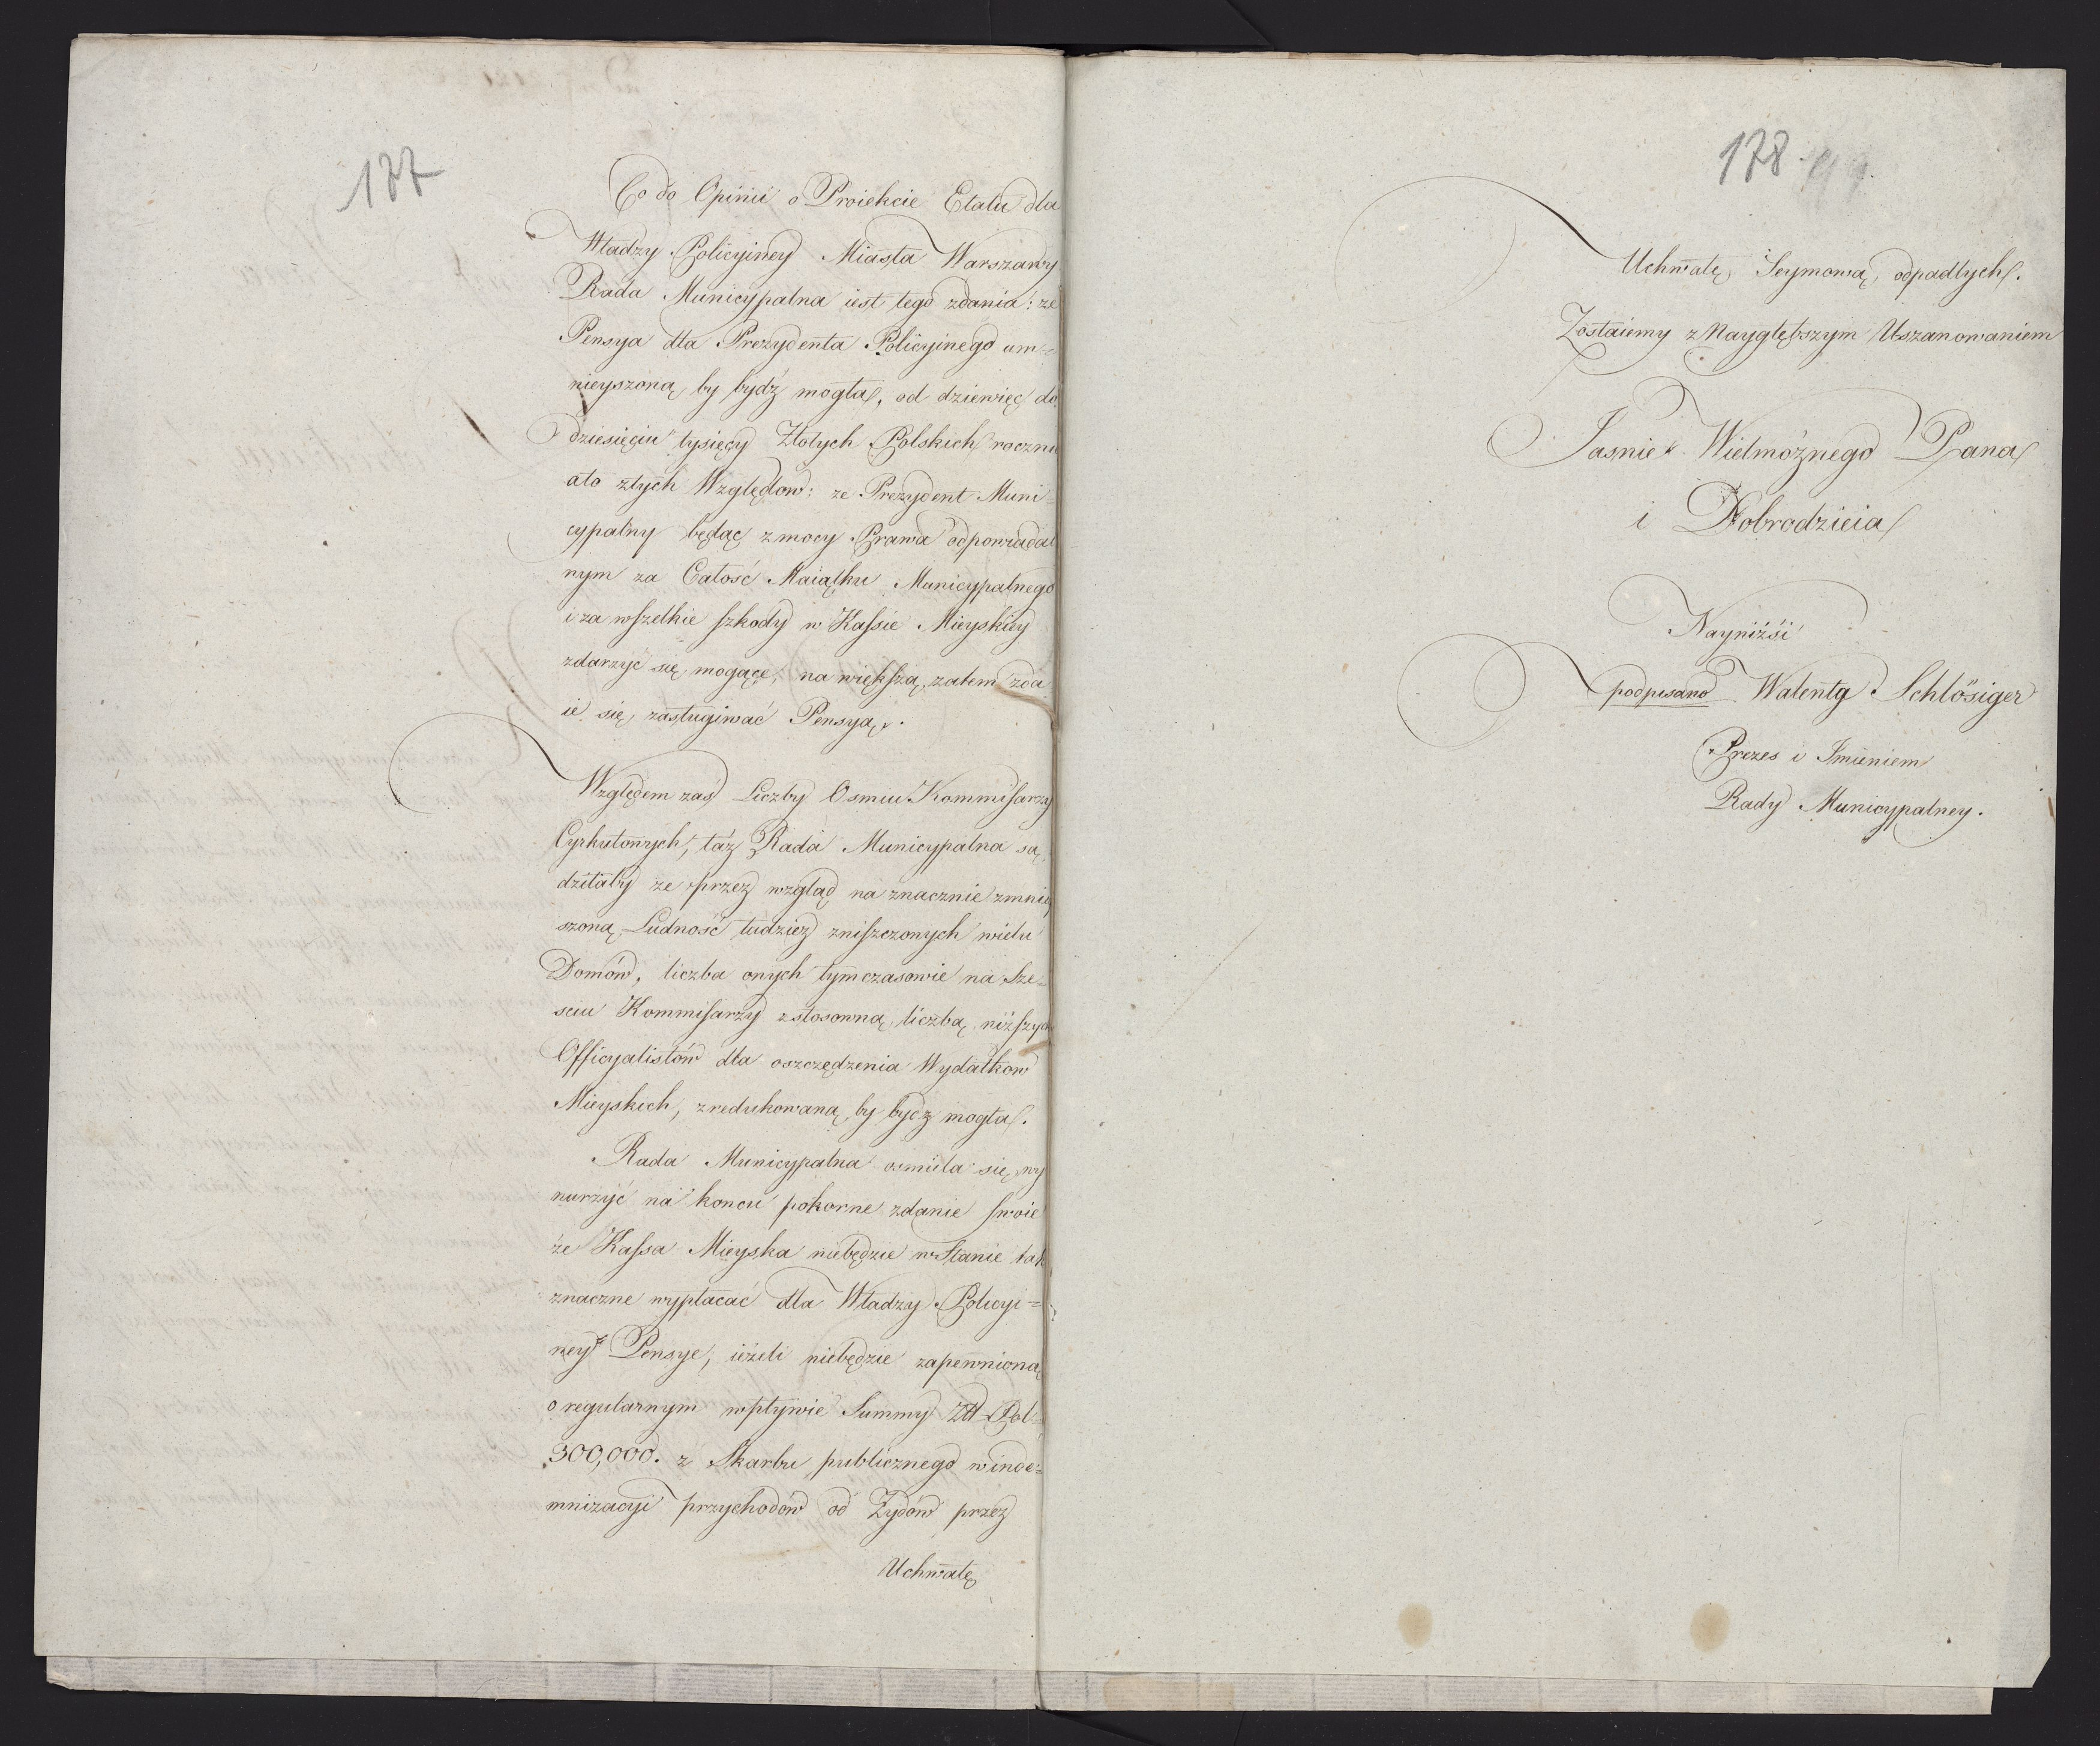 177
Co do Opinii o Proiekcie Etatu dla
Władzy Policyiney Miasta Warszawy
Rada Municypalna iest tego zdania: że
Pensya dla Prezydenta Policyinego um=
nieyszoną by bydź mogła, od dziewięc do
dziesięciu tysięcy Złotych Polskich roczni
ato ztych Względow: ze Prezydent Muni=
cypalny będąc zmocy Prawa odpowiadal
nym za Całość Maiątku Municypalnego
i za wszelkie szkody w Kassie Mieyskiey
zdarzyć się mogące, na większą zatem zda
ie się zasługiwać Pensyą.
Względem zaś Liczby Osmiu Kommissarzy
Cyrkułowych, taż Rada Municypalna są
dziłaby ze przez wzgląd na znacznie zmniey
szoną Ludność tudzież zniszczonych wielu
Domów, liczba onych tymczasowie na Sze=
sciu Kommissarzy zstosowną liczbą niższych
Officyalistów dla oszczędzenia Wydatkow
Mieyskich, zredukowaną by bydź mogła.
Rada Municypalna osmiela się wy
nurzyć na koncu pokorne zdanie swoie
że Kassa Mieyska niebędzie w Stanie tak
znaczne wypłacać dla Władzy Policyi=
ney Pensye, ieżeli niebędzie zapewnioną
o regularnym wpływie Summy Zł Pol:
300,000. z Skarbu publicznego w inde=
mnizacyi przychodów od Żydów przez
Uchwałę
178
Uchwałę Seymową odpadłych.
Zostaiemy z Naygłębszym Uszanowaniem
Jasnie Wielmożnego Pana
i Dobrodzieia
Nayniżsi
podpisano Walenty Schlösiger
Prezes i Imieniem
Rady Municypalney.